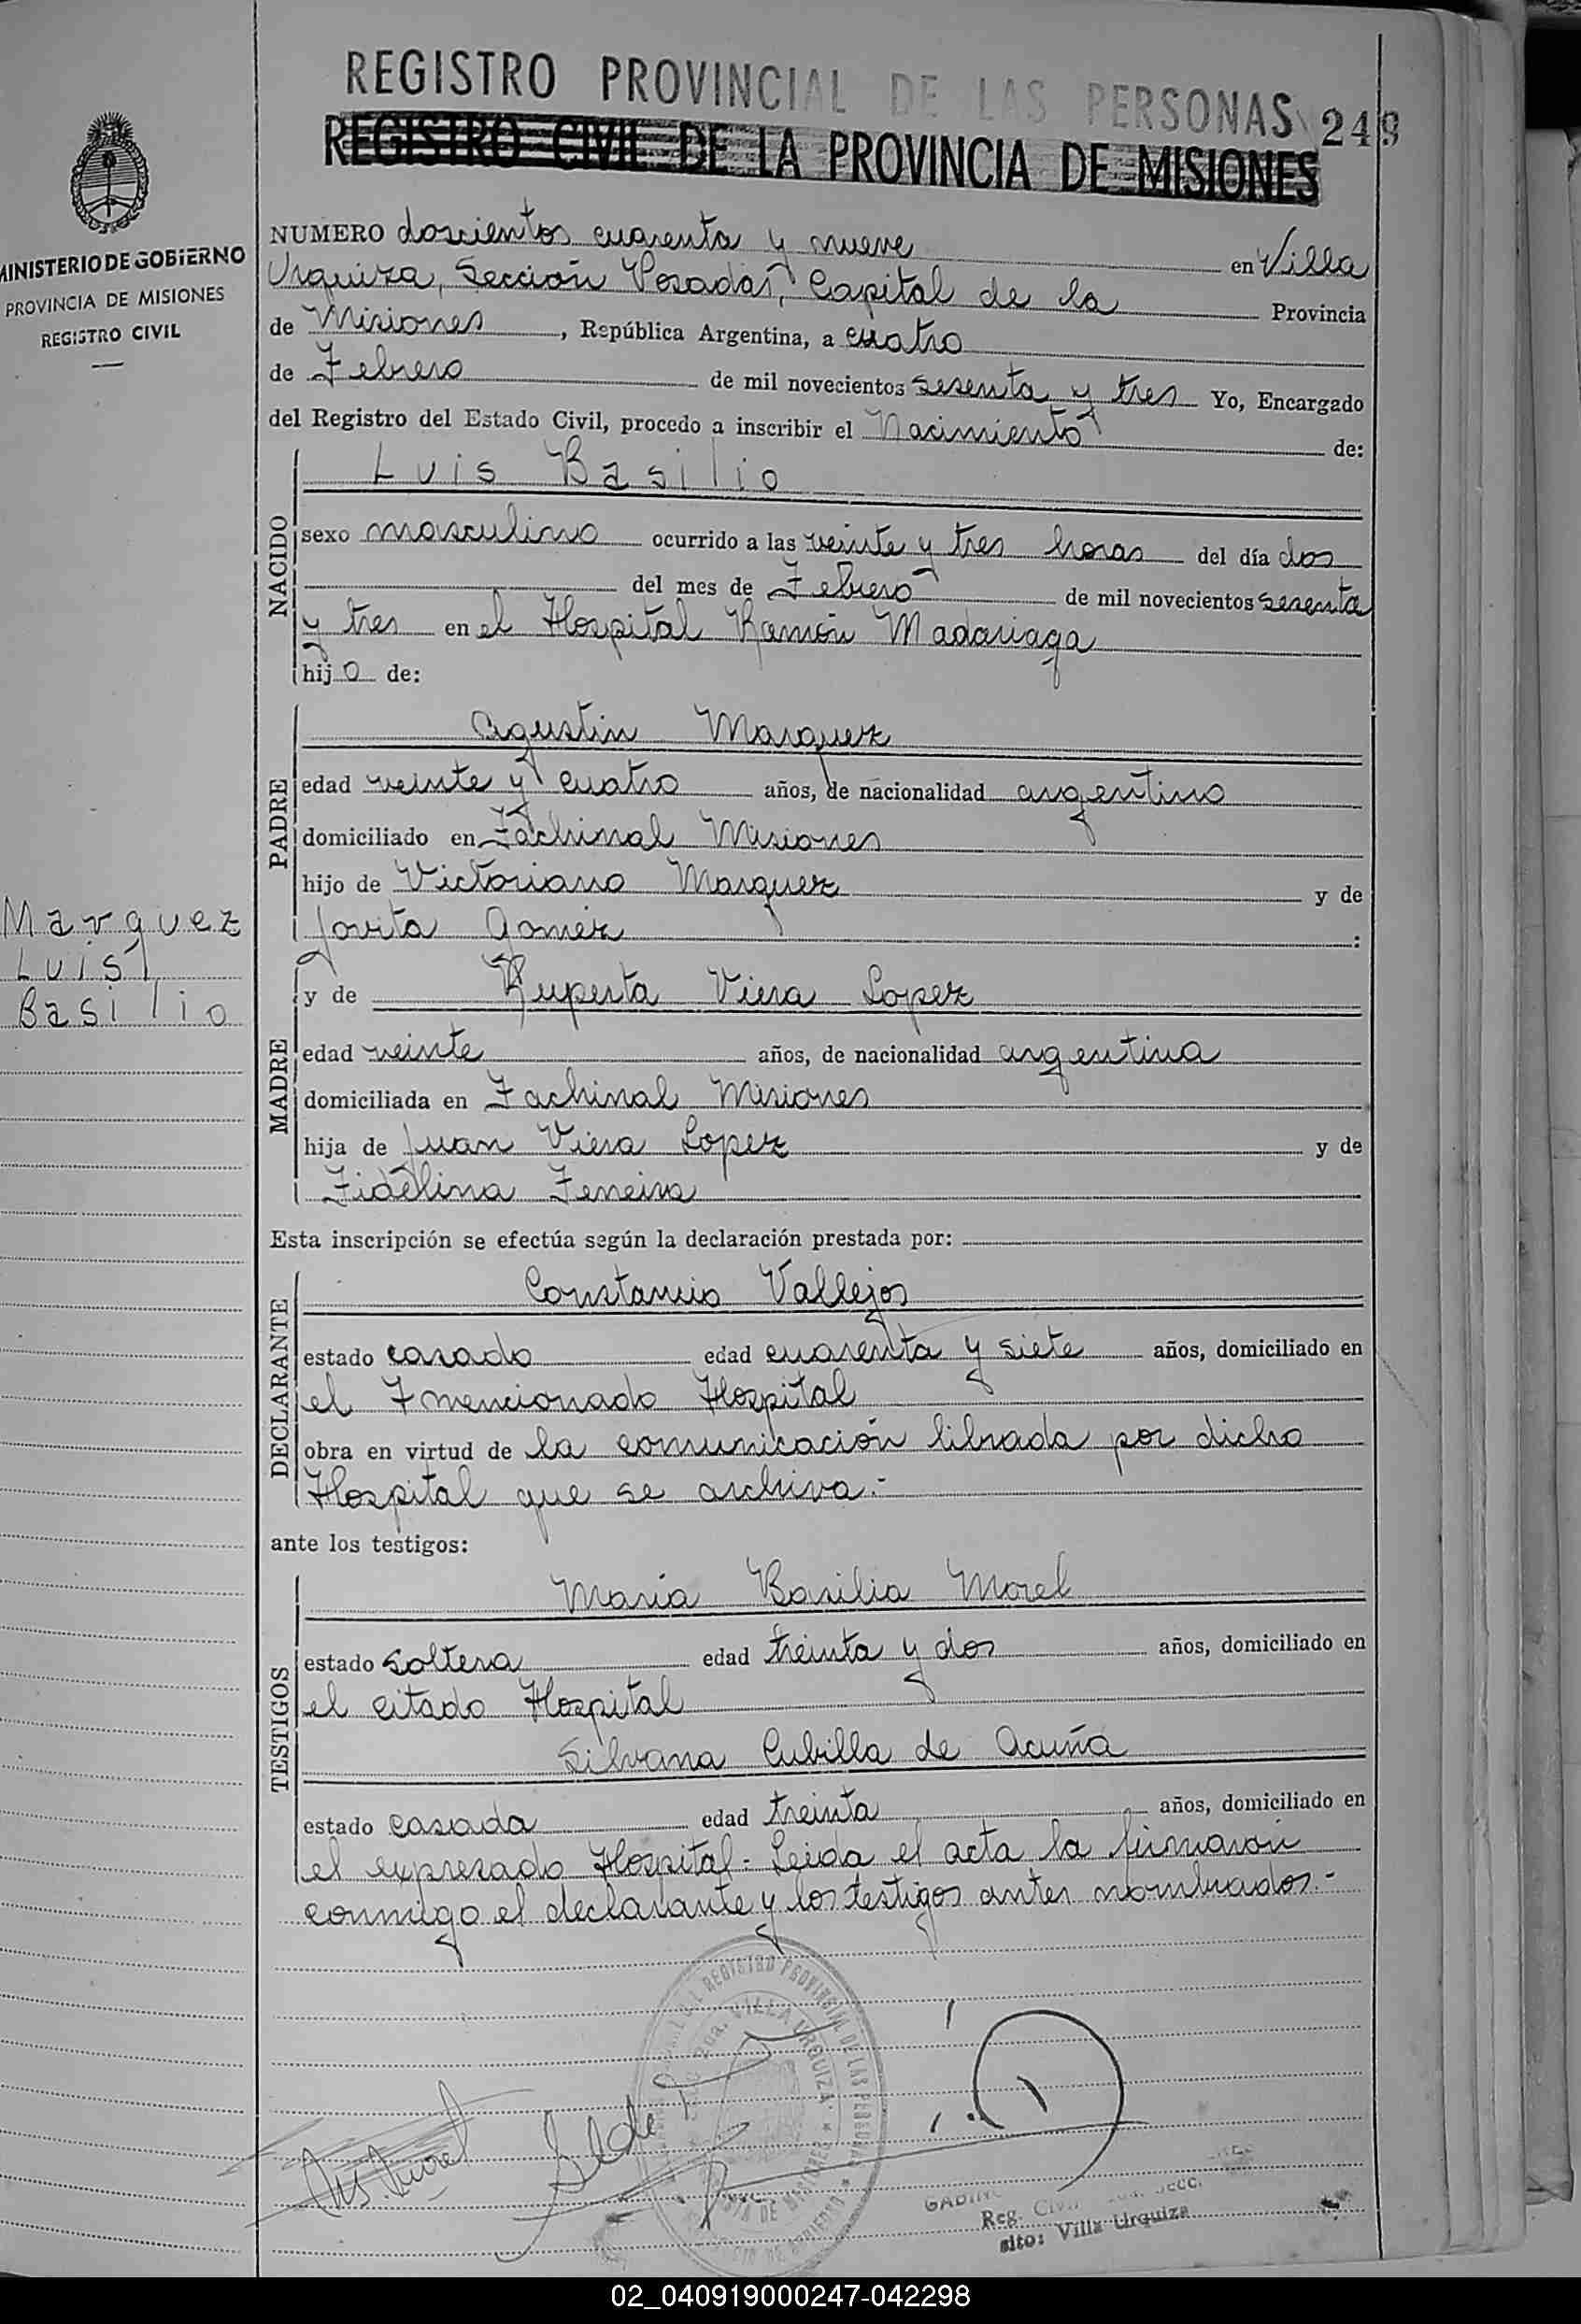 REGISTRO PROVINCIAL DE LAS PERSONAS 249
REGISTRO CIVIL DE LA PROVINCIA DE MISIONES
MINISTERIO DE GOBIERNO
PROVINCIA DE MISIONES
REGISTRO CIVIL
NUMERO doscientos cuarenta y nueve en Villa
Urquiza, Sección Posadas, Capital de la Provincia
de Misiones, República Argentina, a cuatro
de Febrero de mil novecientos sesenta y tres Yo, Encargado
del Registro del Estado Civil, procedo a inscribir el Nacimiento de:
NACIDO
Luis Basilio
sexo masculino ocurrido a las veinte y tres horas del día dos
del mes de Febrero de mil novecientos sesenta
y tres en el Hospital Ramón Madariaga
hijo de:
PADRE
Agustin Marquez
edad veinte y cuatro años, de nacionalidad argentino
domiciliado en Fachinal Misiones
hijo de Victoriano Marquez y de
Jovita Gomez :
Marquez
Luis
Basilio
MADRE
y de Ruperta Viera Lopez
edad veinte años, de nacionalidad argentina
domiciliada en Fachinal Misiones
hija de Juan Viera Lopez y de
Fidelina Ferreira
Esta inscripción se efectúa según la declaración prestada por:
DECLARANTE
Constancio Vallejos
estado casado edad cuarenta y siete años, domiciliado en
el mencionado Hospital
obra en virtud de la comunicación librada por dicho
Hospital que se archiva.-
ante los testigos:
TESTIGOS
María Basilia Morel
estado soltera edad treinta y dos años, domiciliado en
el citado Hospital
Silvana Cubilla de Acuña
estado casada edad treinta años, domiciliado en
el expresado Hospital- Leida el acta la firmaron
conmigo el declarante y los testigos antes nombrados.-
REGISTRO PROVINCIAL DE LAS PERSONAS
VILLA URQUIZA
Reg. Civil
sito: Villa Urquiza
02_040919000247-042298